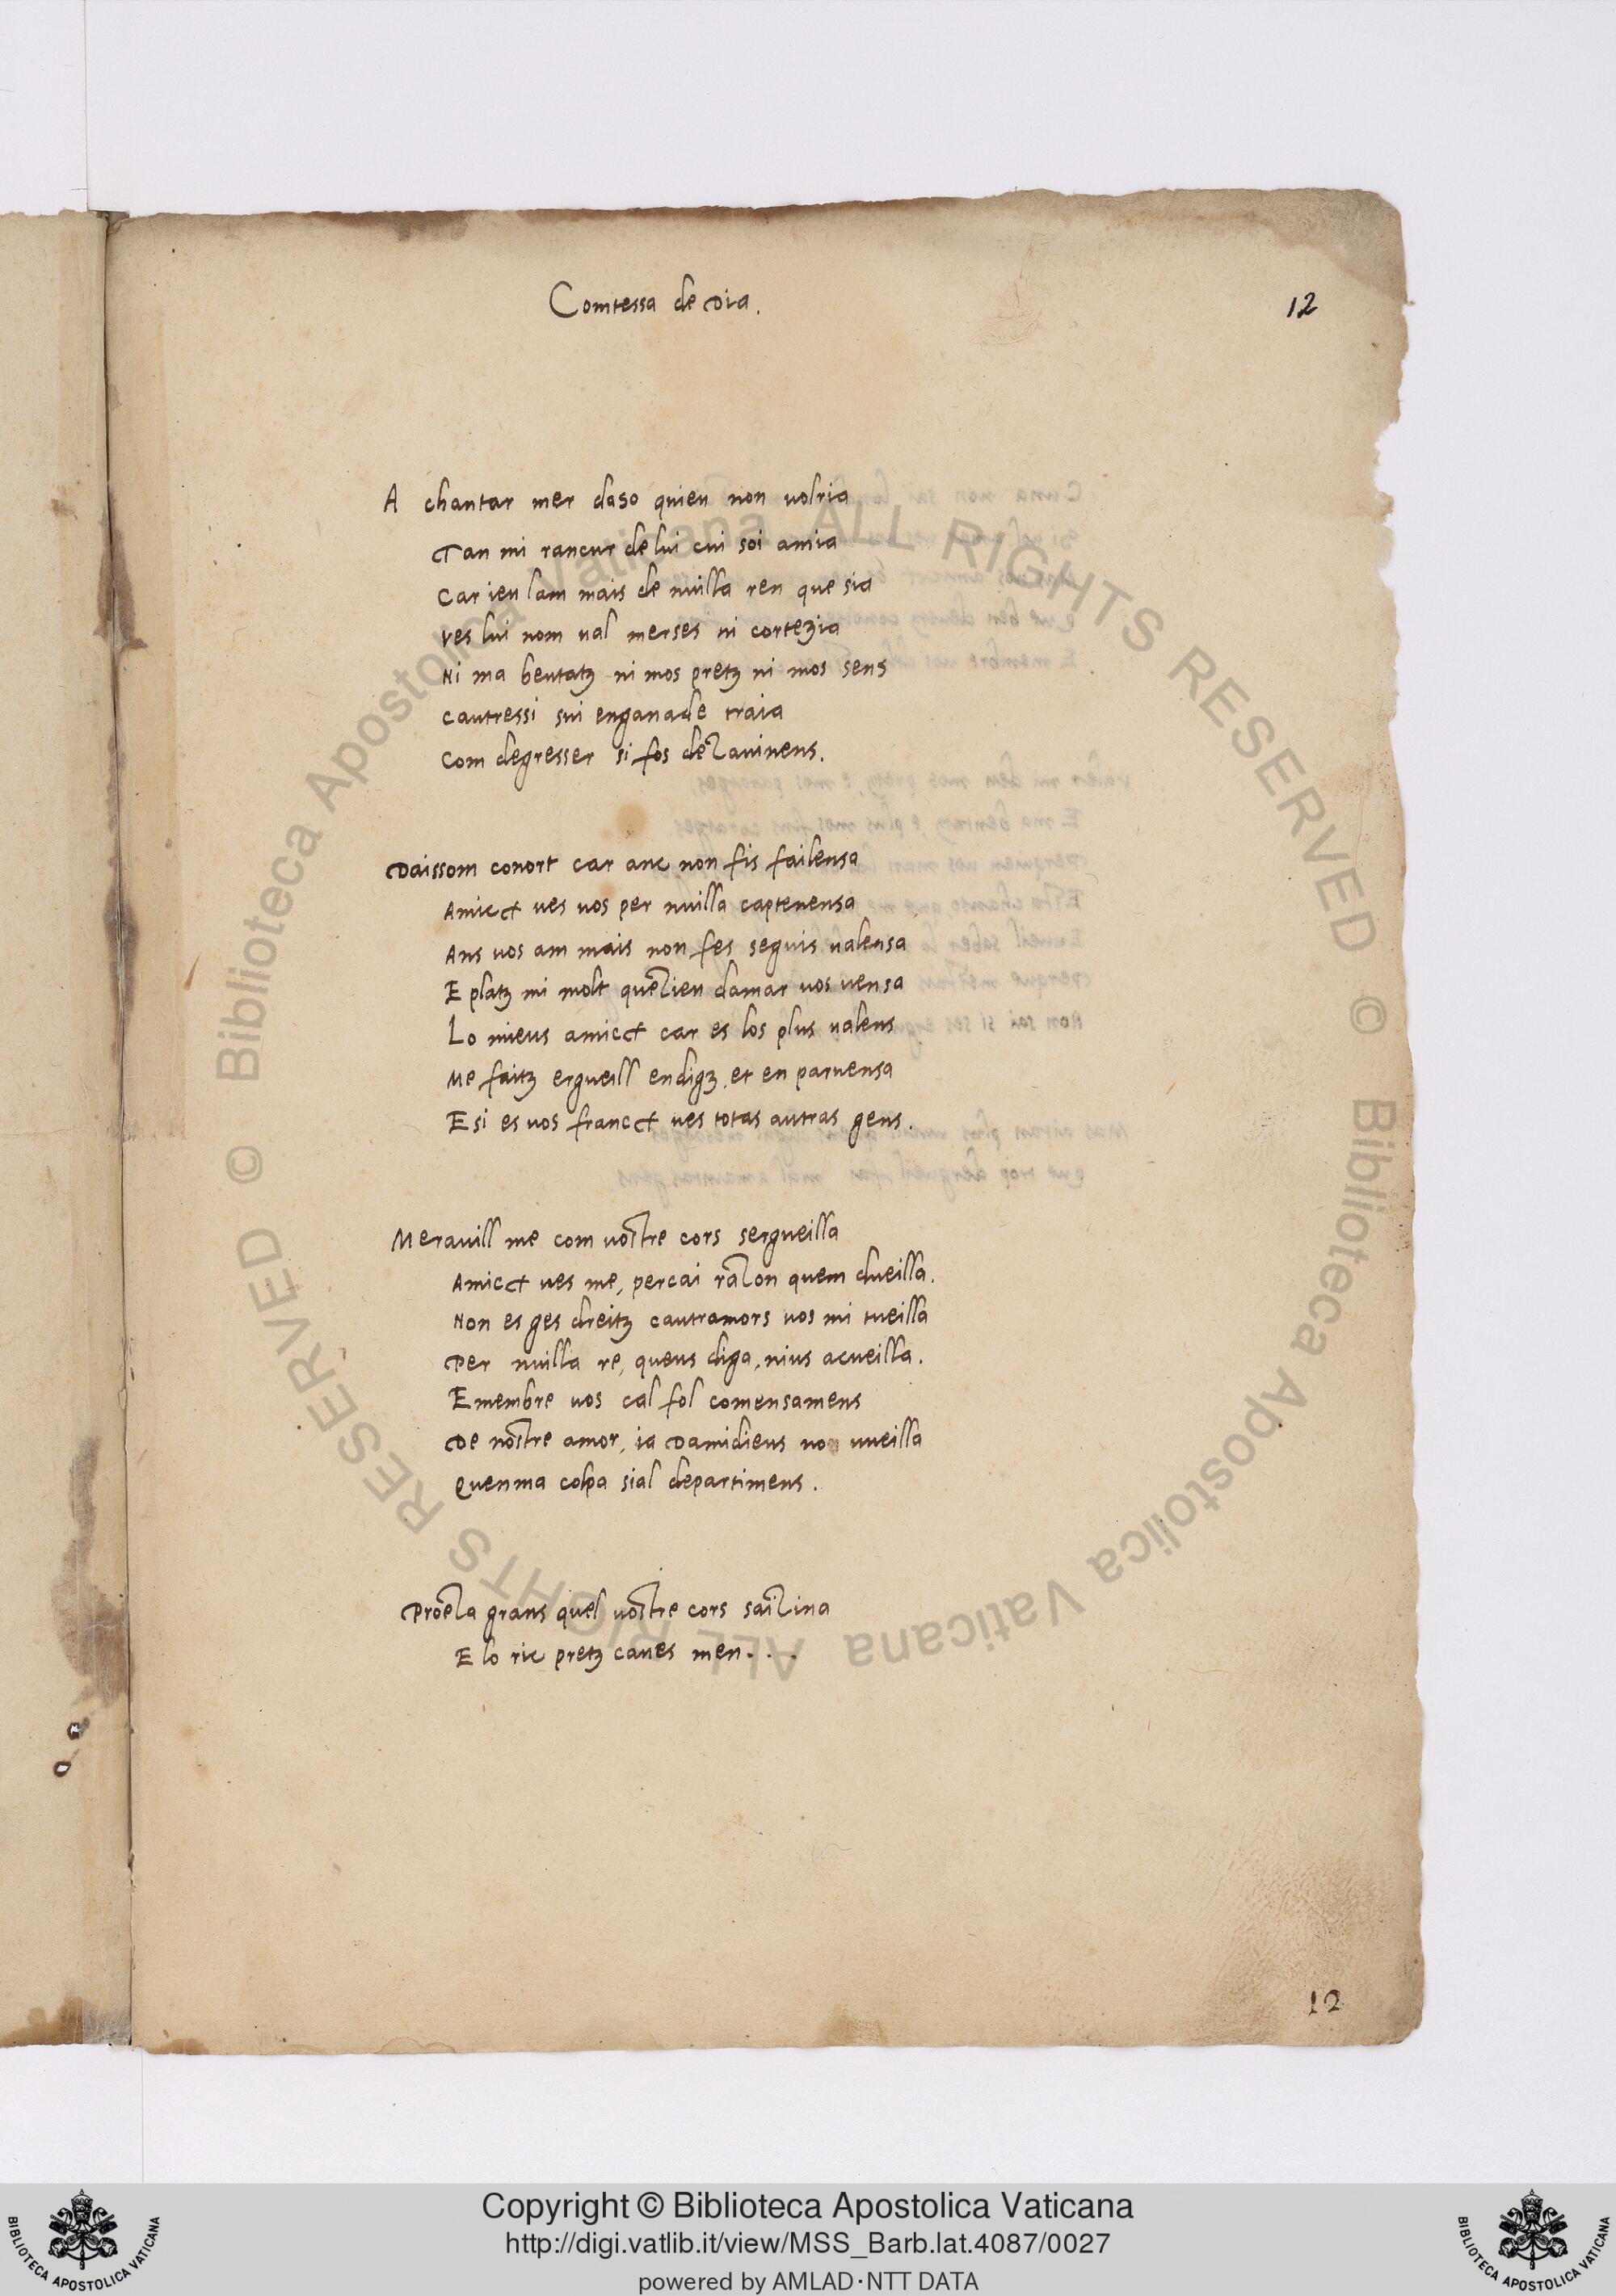 Comtessa de Dia.
12
A chantar mer daso quieu non uolria
Tan mi rancur de lui cui soi amia
Car ieu lam mais de nuilla ren que sia
Ves lui nom ual merses ni cortezia
Ni ma beutatz ni mos pretz ni mos sens
Cautressi sui enganade traia
Com degresser si fos dezauinens.
Daissom conort car anc non fis failensa
Amicx ues uos per nuilla captenensa
Ans uos am mais non fes seguis ualensa
E platz mi molt quezieu damar uos uensa
Lo mieus amicx car es los plus ualens
Me faitz ergueill endigz, et en paruensa
E si es uos francx ues totas autras gens.
Merauill me com uostre cors sergueilla
Amicx ues me, percai razon quem dueilla.
Non es ges dreitz cautramors uos mi tueilla
Per nuilla re, queus diga, nius acueilla.
E membre uos cal fol comensamens
De nostre amor, ia Damidieus non uueilla
Quenma colpa sial departimens.
Proeza grans quel uostre cors saizina
E lo ric pretz caues men...
12
© Biblioteca Apostolica Vaticana ALL RIGHTS RESERVED
© Biblioteca Apostolica Vaticana ALL RIGHTS RESERVED
Copyright © Biblioteca Apostolica Vaticana
http://digi.vatlib.it/view/MSS_Barb.lat.4087/0027
powered by AMLAD·NTT DATA
BIBLIOTECA APOSTOLICA VATICANA
BIBLIOTECA APOSTOLICA VATICANA